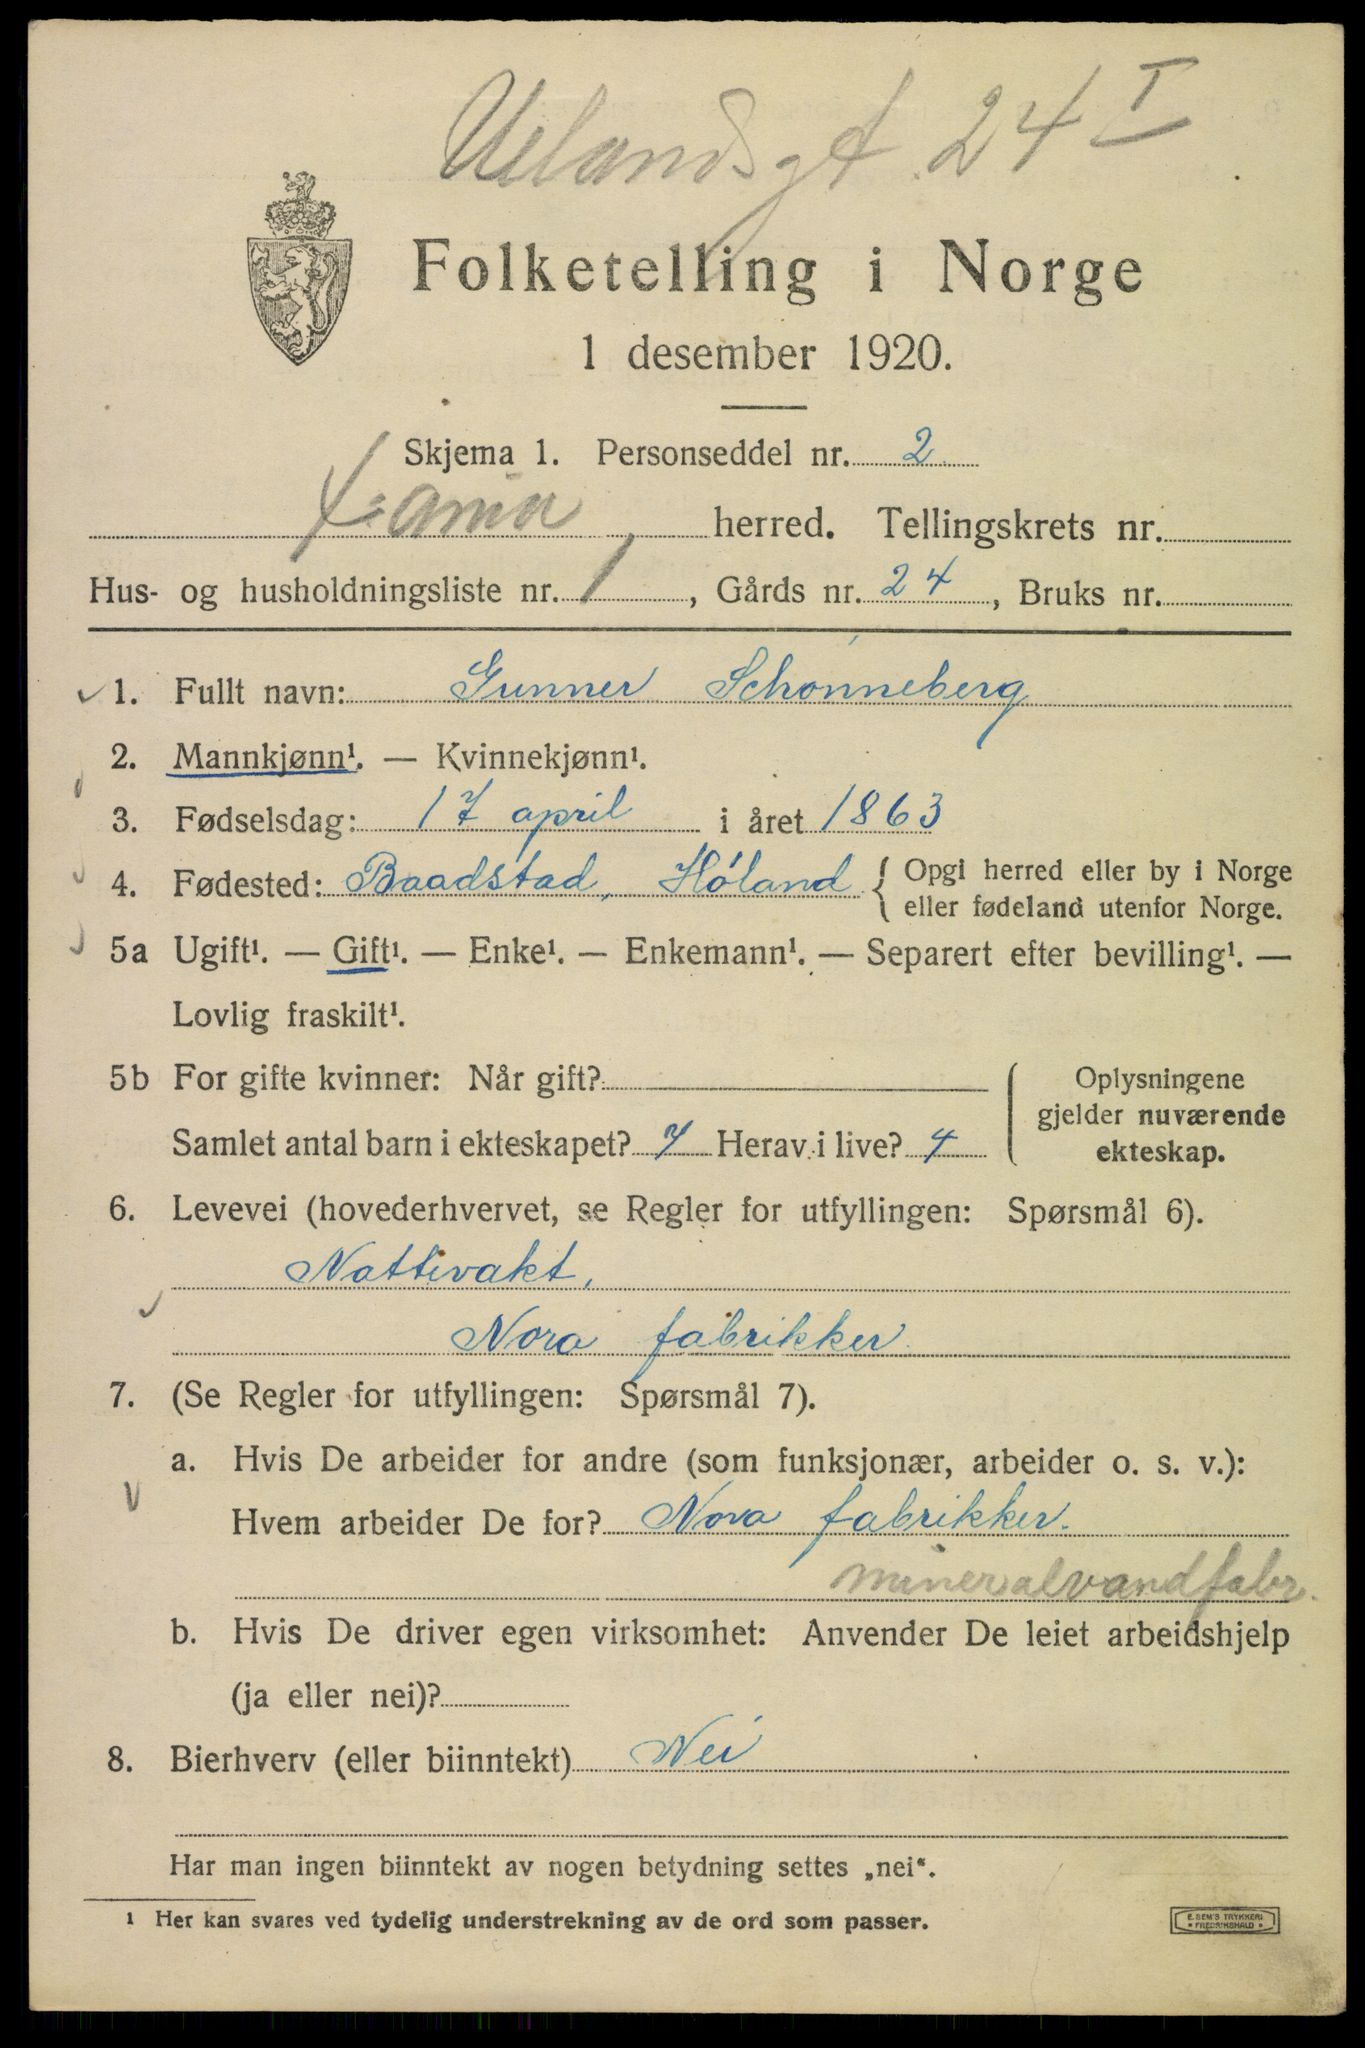 Uelandsgt. 24 I
Folketelling i Norge
1 desember 1920.
Skjema 1. Personseddel nr. 2
X:ania herred. Tellingskrets nr.
Hus- og husholdningsliste nr. 1, Gårds nr. 24, Bruks nr.
1. Fullt navn: Gunner Schønneberg
2. Mannkjønn¹. — Kvinnekjønn¹.
3. Fødselsdag: 17 april i året 1863
4. Fødested: Baadstad, Høland { Opgi herred eller by i Norge
eller fødeland utenfor Norge.
5a Ugift¹. — Gift¹. — Enke¹. — Enkemann¹. — Separert efter bevilling¹. —
Lovlig fraskilt¹.
5b For gifte kvinner: Når gift?
Samlet antal barn i ekteskapet? 7 Herav i live? 4
Oplysningene
gjelder nuværende
ekteskap.
6. Levevei (hovederhvervet, se Regler for utfyllingen: Spørsmål 6).
Nattevakt,
Nora fabrikker.
7. (Se Regler for utfyllingen: Spørsmål 7).
a. Hvis De arbeider for andre (som funksjonær, arbeider o. s. v.):
Hvem arbeider De for? Nora fabrikker.
mineralvandfabr.
b. Hvis De driver egen virksomhet: Anvender De leiet arbeidshjelp
(ja eller nei)?
8. Bierhverv (eller biinntekt) Nei
Har man ingen biinntekt av nogen betydning settes „nei“.
¹ Her kan svares ved tydelig understrekning av de ord som passer.
E. SEM'S TRYKKERI
* FREDRIKSHALD *